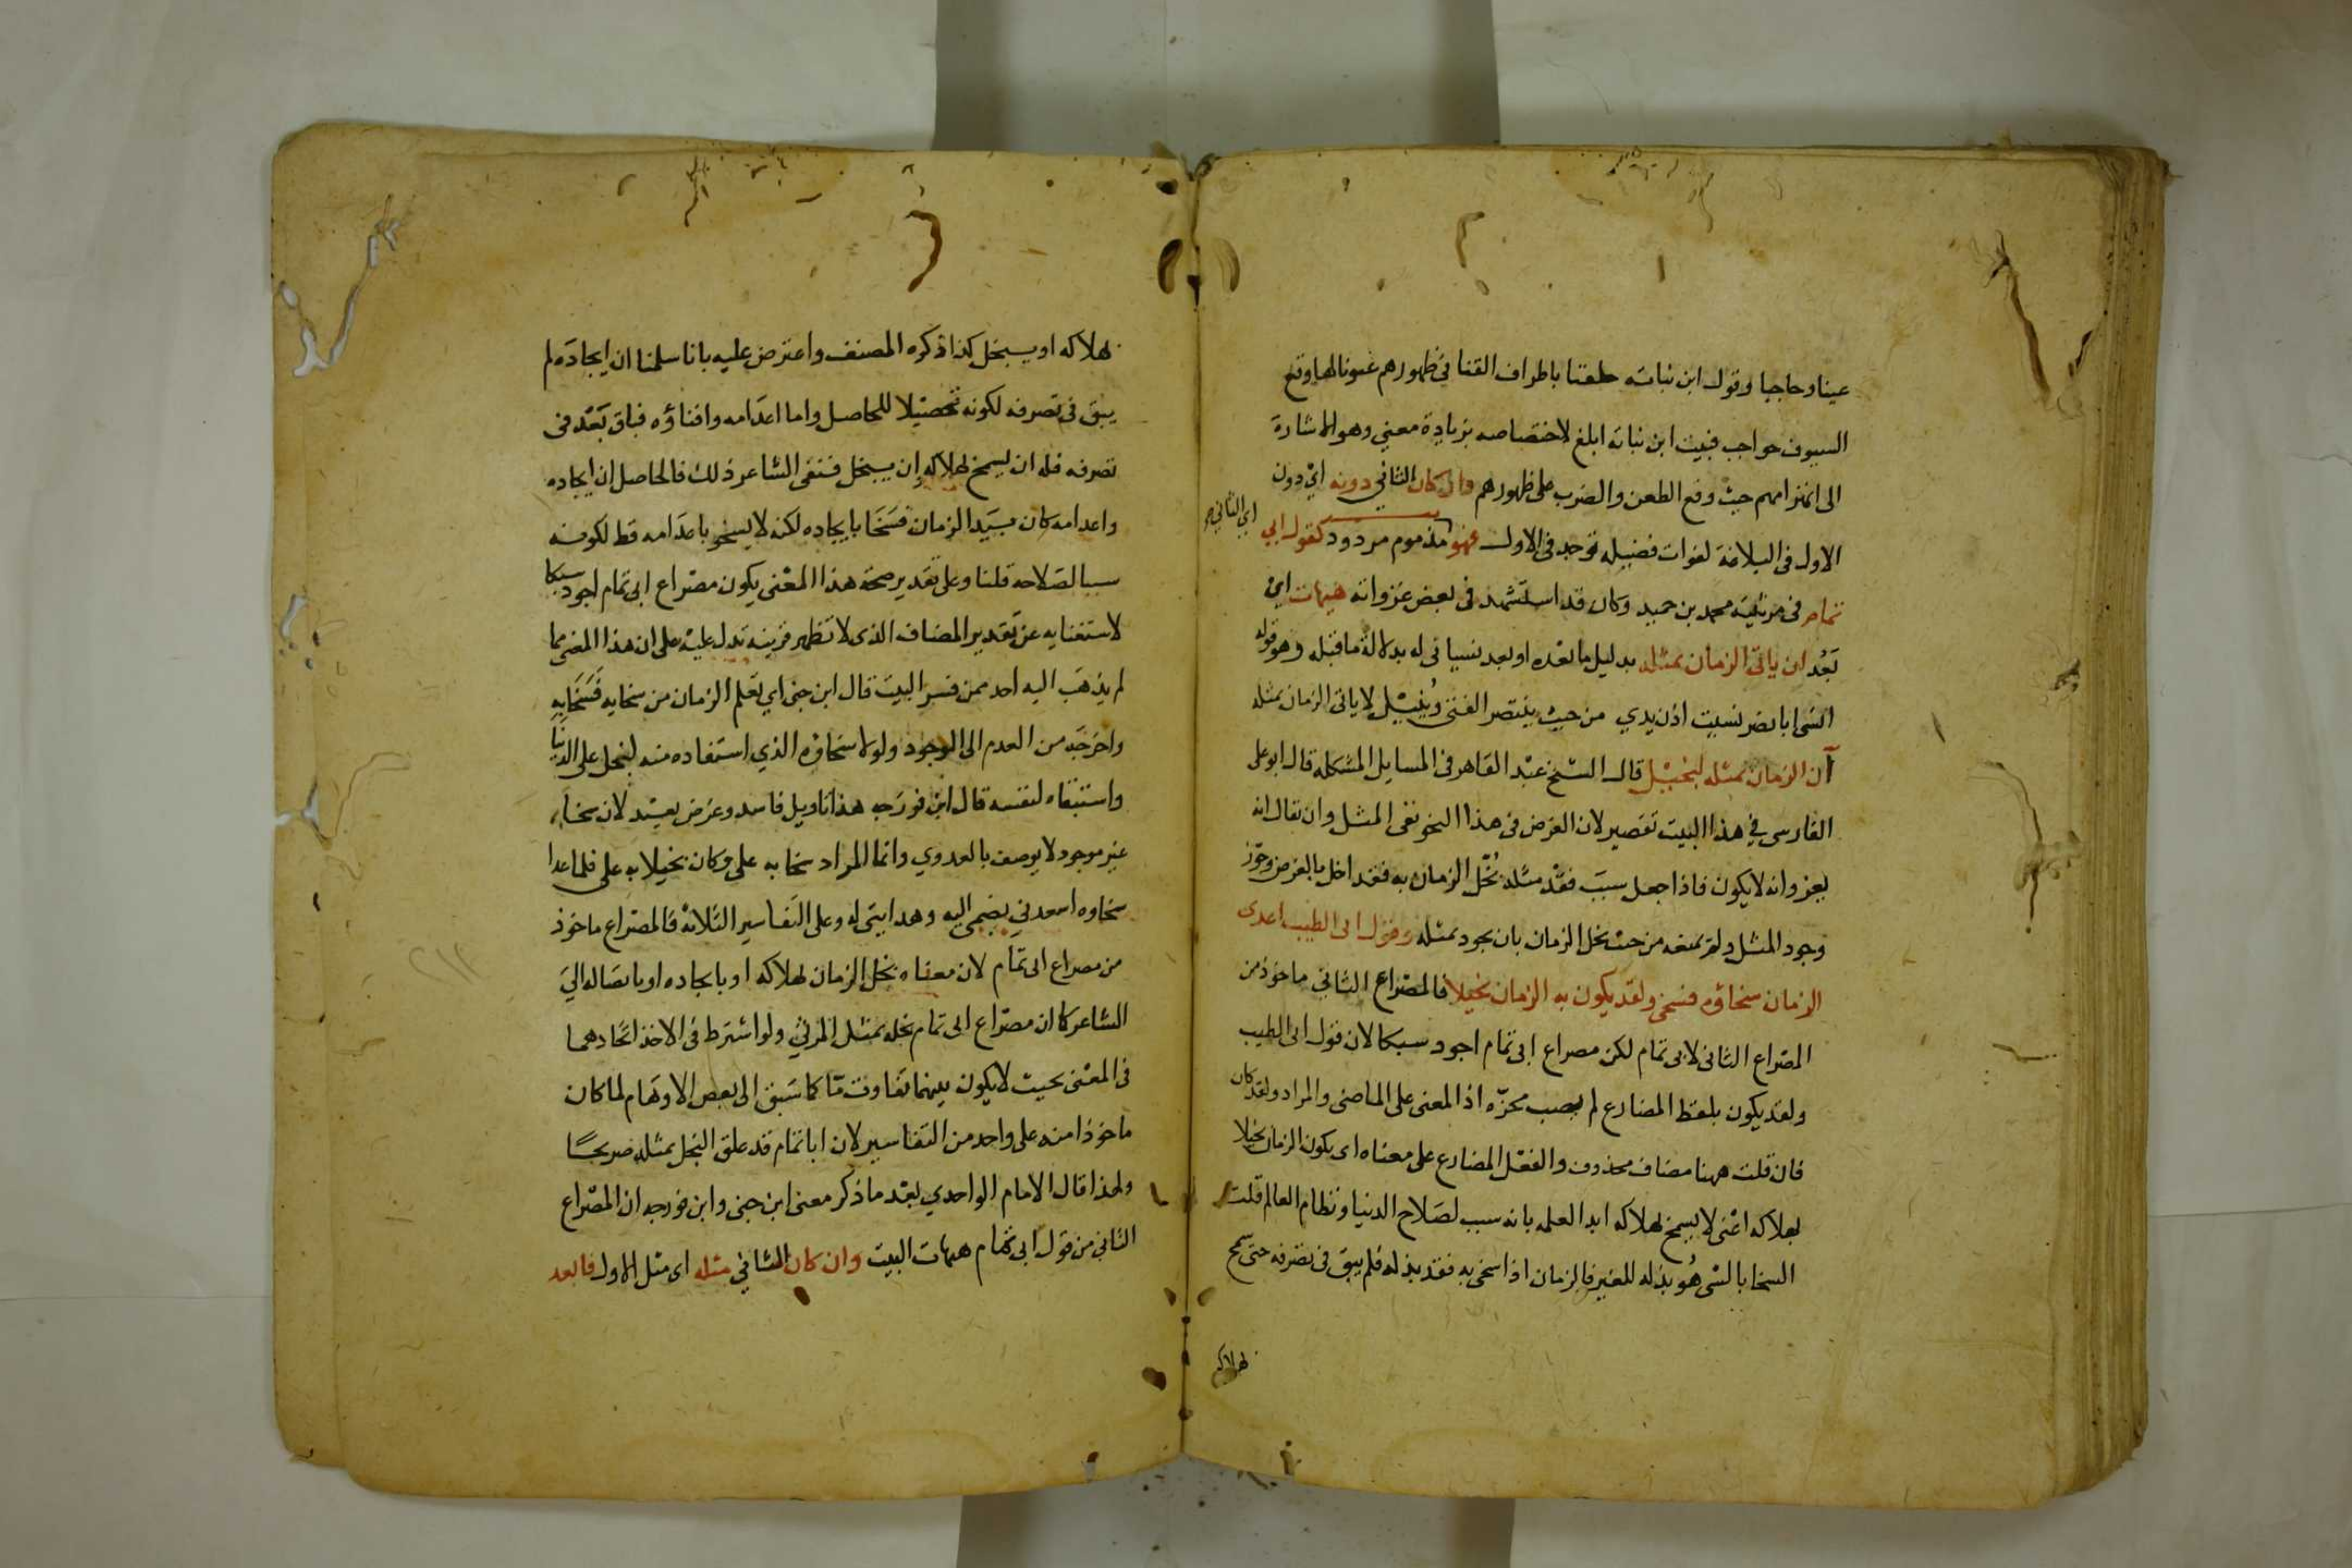 عينا وحاجبا وقول ابن نباته خلقنا باطراف القنا في ظهورهم عيونا لها وقع
السيوف حواجب فبيت ابن نباته ابلغ لاختصاصه بزيادة معني وهو الاشارة
الى انهزامهم حيث وقع الطعن والضرب على ظهورهم وان كان الثاني دونه اي دون
الاول في البلاغة لفوات فضيله توجد في الاول فهو اي الثاني مذموم مردود كقول ابي
تمام في مرثية محمد بن حميد وكان قد استشهد في بعض غزواته هيهات اي
بَعُد ان ياتى الزمان بمثله بدليل ما بعده او بعد نسياني له بدلالة ما قبله وهو قوله
انسى ابا نصر نسيت اذن يدي من حيث ينتصر الفتى ويُنيل لا ياتى الزمان بمثله
ان الزمان بمثله لبخيل قال الشيخ عبد القاهر في المسايل المشكله قال ابو على
الفارسي في هذا البيت تقصير لان الغرض في هذا النحو نفى المثل وان يقال انه
يعز وانه لا يكون فاذا جعل سبب فقد مثله بُخل الزمان به فقد اخل بالغرض وجوز
وجود المثل ولم يمنعه من حيث بخل الزمان بان يجود بمثله وقول ابى الطيب اعدى
الزمان سخاؤه فسخى ولقد يكون به الزمان بخيلا فالمصراع الثاني ماخوذ من
المصراع الثاني لابى تمام لكن مصراع ابى تمام اجود سبكا لان قول ابى الطيب
ولقد يكون بلفظ المضارع لم يصب محزّه اذ المعنى على الماضى والمراد ولقد كان
فان قلت ههنا مضاف محذوف والفعل المضارع على معناه اى يكون الزمان بخيلا
بهلاكه اعنى لا يسمح بهلاكه ابدا لعلمه بانه سبب لصلاح الدنيا ونظام العالم قلت
السخا بالشى هُو بذله للغير فالزمان اذا سخى به فقد بذله فلم يبق فى تصرفه حتى يسمح
لهلاكه
لهلاكه او يبخل كذا ذكره المصنف واعترض عليه بانا سلمنا ان ايجاده لم
يبق فى تصرفه لكونه تحصيلا للحاصل واما اعدامه وافناؤه فباق بَعْد فى
تصرفه فله ان يسمح لهلاكه وان يبخل فنفى الشاعر ذلك فالحاصل ان ايجاده
واعدامه كان بيَد الزمان فسَخَا بايجاده لكنه لا يسخو باعدامه قط لكونه
سببا لصلاحه قلنا وعلى تقدير صحة هذا المعنى يكون مصراع ابى تمام اجود سبكا
لاستغنايه عن تقدير المضاف الذى لا تظهر قرينه تدل عليه على ان هذا المعنى مما
لم يذهب اليه احد ممن فسر البيت قال ابن جنى اي تعلم الزمان من سخايه فسَخَا به
واخرجه من العدم الى الوجود ولولا سخاؤه الذي استفاده منه لبخل على الدنيا
واستبقاه لنفسه قال ابن فورجه هذا تاويل فاسد وغرض بعيد لان سخاء
غير موجود لا يوصف بالعدوي وانما المراد سخا به على وكان بخيلا به على فلما عدا
سخاوه اسعدني بضمى اليه وهدايتى له وعلى التفاسير الثلاثة فالمصراع ماخوذ
من مصراع ابى تمام لان معناه بخل الزمان لهلاكه او بايجاده او بايصاله الي
الشاعر كما ان مصراع ابى تمام بخله بمثل المرثي ولو اشترط فى الاخذ اتحادهما
فى المعنى بحيث لا يكون بينهما تفاوت مّا كما سَبق الى بعض الاوهَام لما كان
ماخوذا منه على واحد من التفاسير لان ابا تمام قد علق البخل بمثله صريحًا
ولهذا قال الامام الواحدي بعد ما ذكر معنى ابن جنى وابن فورجه ان المصراع
الثاني من قول ابى تمام هيهات البيت وان كان الثاني مثله اى مثل الاول فابعد